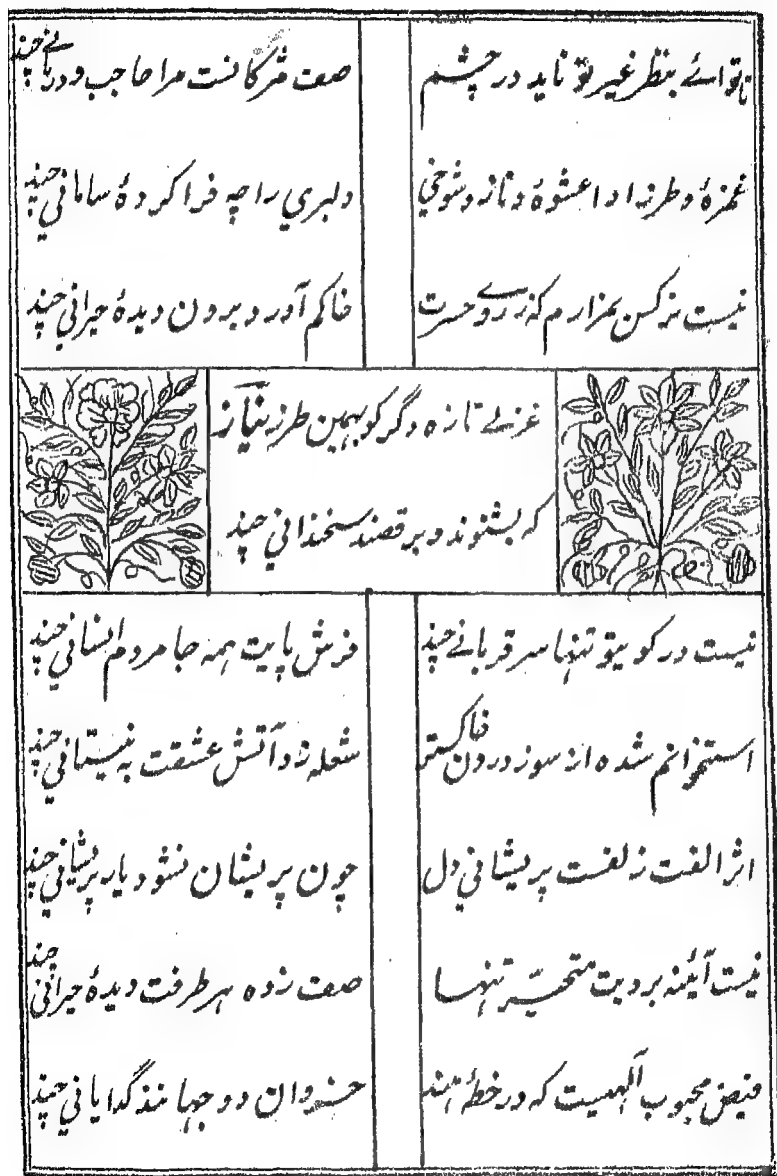 تا تو آئے بنظر غیر تو ناید در چشم
صف مژگانت مرا حاجب و دربانے چند
غمزۂ و طرز ادا عشوۂ و ناز و شوخي
دلبري را چه فرا کردۂ ساماني چند
نیست نرکس بمزارم که ز روے حسرت
خاکم آورد برون دیدۂ حیراني چند
غزلے تازه دگر کو بهمین طرز نیاز
که بشنوند و برقصند سخنداني چند
نیست در کویتو تنها سر قربانے چند
فرش پایت همه جا مردم انساني چند
استخوانم شده از سوز درون خاکستر
شعله زد آتش عشقت به نیستاني چند
اثر الفت زلفست پریشاني دل
چون پریشان نشود یار پریشاني چند
نیست آئینه برویت متحیّر تنها
صف زده هر طرفت دیدۂ حیراني چند
فیض محبوب آلهیست که در خطۂ هند
خسروان دو جهانند گدایاني چند